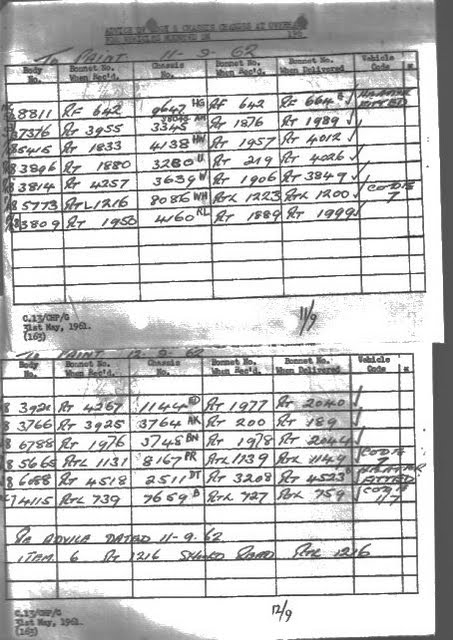 ADVICE OF BODY & CHASSIS CHANGES AT OVERHAUL
To PAINT 11-9-62
Body No. Bonnet No. When Rec'd. Chassis No. Bonnet No. When Rec'd. Bonnet No. When Delivered Vehicle Code *
8811 RF 642 9647 HG RF 642 RF 664 ✓ HEATER FITTED
7376 RT 3955 3345 RT 1876 RT 1989 ✓
5415 RT 1833 4138 RT 1957 RT 4012 ✓
3896 RT 1880 3280 U RT 219 RT 4026 ✓
3814 RT 4257 3639 W RT 1906 RT 3849 ✓
5773 RTL 1216 8086 WH RTL 1223 RTL 1200 ✓ CODE 7
3809 RT 1950 4160 RL RT 1889 RT 1999 ✓
C.13/CHP/G
31st May, 1961.
(163)
11/9
To PAINT 12-9-62
Body No. Bonnet No. When Rec'd. Chassis No. Bonnet No. When Rec'd. Bonnet No. When Delivered Vehicle Code *
RT 4267 1144 RT 1977 RT 2040 ✓
3766 RT 3925 3764 AK RT 200 RT 189 ✓
6788 RT 1976 3748 BN RT 1978 RT 2044 ✓
5665 RTL 1131 8167 PR RTL 1139 RTL 1149 ✓ CODE 7
RT 4518 2511 DT RT 3208 RT 4523 ✓ HEATER FITTED
4115 RTL 739 7659 B RTL 727 RTL 759 ✓ CODE
ADVICE DATED 11-9-62
ITEM 6 RT 1216 SHOULD READ RTL 1216
C.13/CHP/G
31st May, 1961.
(163)
12/9